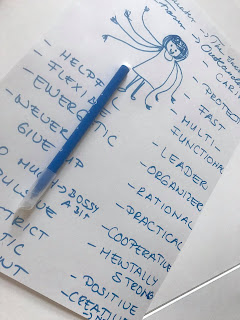 - HELPF
- FLEXI
- ENERGETIC
- NEVER
GIVE UP
O MUCH → BOSSY
A BIT
PULSIVE
TRICT
TIC
NT
→ The
- CARI
- PROTE
- FAST
- MULTI-
FUNCTIONAL
- LEADER
- ORGANIZER
- RATIONAL
- PRACTICAL
- COOPERATIVE
- MENTALLY
STRONG
- POSITIVE
- CREATIVE